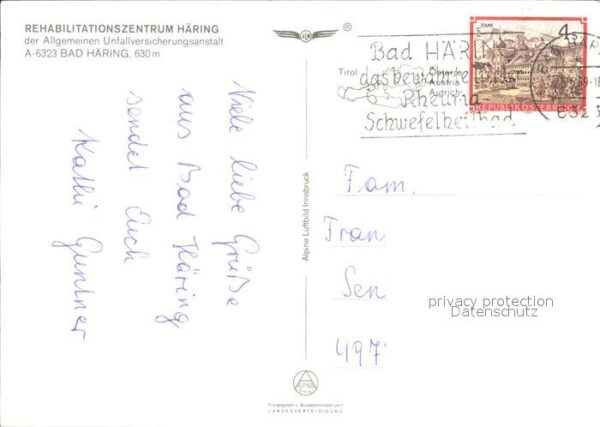 REHABILITATIONSZENTRUM HÄRING
der Allgemeinen Unfallversicherungsanstalt
A-6323 BAD HÄRING, 630 m
Viele liebe Grüße
aus Bad Häring
sendet Euch
Kathi Guntner
Alpine Luftbild Innsbruck
Freigegeben v. Bundesministerium
LANDESVERTEIDIGUNG
Bad HÄRING
Tirol
Österreich
Austria
Autriche
das bewährte
Rheuma-
Schwefelheilbad
4 S
REPUBLIK ÖSTERREICH
BAD HÄRING
Fam.
Fran
Sen
497
privacy protection
Datenschutz